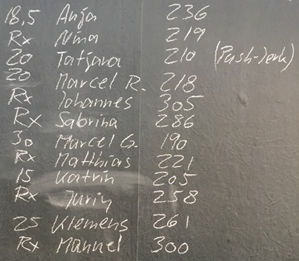 18,5 Anja 236
Rx Nina 219
20 Tatjana 210 (Push-Jerk)
20 Marcel R. 218
Rx Johannes 305
Rx Sabrina 286
30 Marcel G. 190
Rx Matthias 221
15 Katrin 205
Rx Juriy 258
25 Klemens 261
Rx Manuel 300